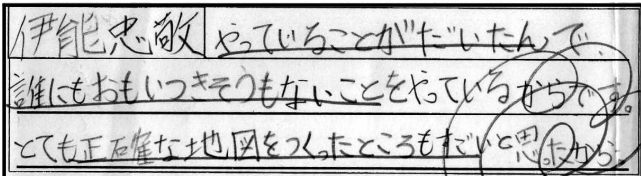 伊能忠敬 やっていることがだいたんで、
誰にもおもいつきそうもないことをやっているからです。
とても正確な地図をつくったところもすごいと思ったから。